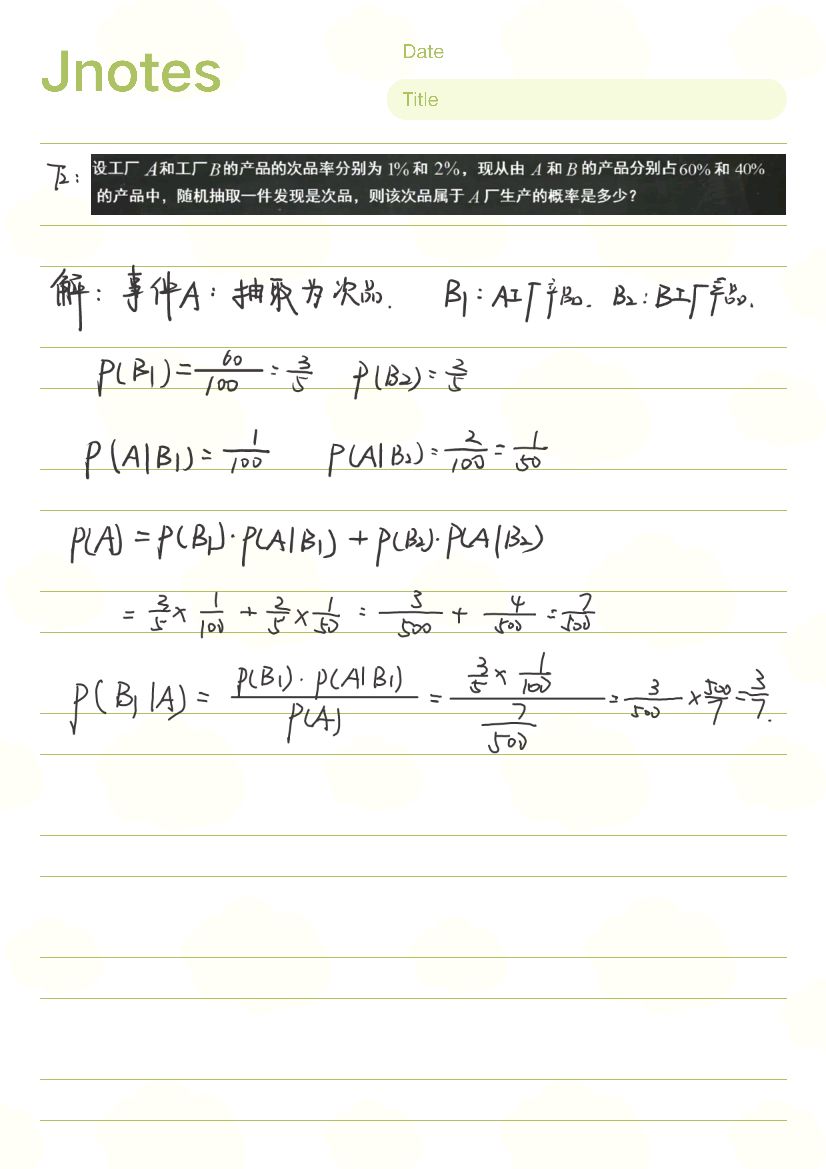 Jnotes
Date
Title
下2：
设工厂 A和工厂B的产品的次品率分别为 1% 和 2%，现从由 A 和 B 的产品分别占60% 和 40%
的产品中，随机抽取一件发现是次品，则该次品属于 A 厂生产的概率是多少？
解：事件A：抽取为次品. B₁：A工厂产品. B₂：B工厂产品.
P(B₁)=60/100=3/5 P(B₂)=2/5
P(A|B₁)=1/100 P(A|B₂)=2/100=1/50
P(A)=P(B₁)·P(A|B₁)+P(B₂)·P(A|B₂)
=3/5×1/100+2/5×1/50=3/500+4/500=7/500
P(B₁|A)=P(B₁)·P(A|B₁)/P(A)=(3/5×1/100)/(7/500)=3/500×500/7=3/7.